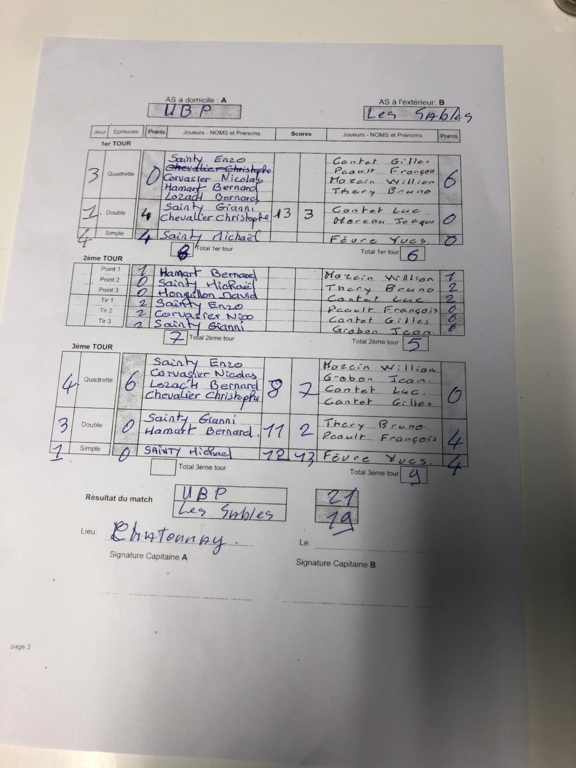 AS à domicile : A AS à l'extérieur: B
UBP Les Sables
Jeux Epreuves Points Joueurs - NOMS et Prénoms Scores Joueurs - NOMS et Prénoms Points
1er TOUR
3 Quadrette 0 Sainty Enzo Cantet Gilles 6
Chevalier Christophe Peault François
Corvasier Nicolas Marcin Willian
Hamart Bernard Thery Bruno
Lozach Bernard
1 Double 4 Sainty Gianni 13 3 Cantet Luc 0
Chevalier Christophe
4 Simple 4 Sainty Michaël Fevre Yves 0
8 Total 1er tour Total 1er tour 6
2ème TOUR
Point 1 1 Hamart Bernard Marcin Willian 1
Point 2 0 Sainty Michaël Thery Bruno 2
Point 3 0 David Cantet Luc 2
Tir 1 2 Sainty Enzo Peault François 0
Tir 2 2 Corvasier Nico Cantet Gilles 0
Tir 3 2 Sainty Gianni Grobon Jean 0
7 Total 2ème tour Total 2ème tour 5
3ème TOUR
4 Quadrette 6 Sainty Enzo 8 7 Marcin Willian 0
Corvasier Nicolas Grobon Jean
Lozach Bernard Cantet Luc
Chevalier Christophe Cantet Gilles
3 Double 0 Sainty Gianni 11 2 Thery Bruno 4
Hamart Bernard Peault François
1 Simple 0 SAINTY Michael 12 13 Fevre Yves 4
Total 3ème tour Total 3ème tour 9
Résultat du match UBP 21
Les Sables 19
Lieu: Chatonnay Le:
Signature Capitaine A Signature Capitaine B
page 3